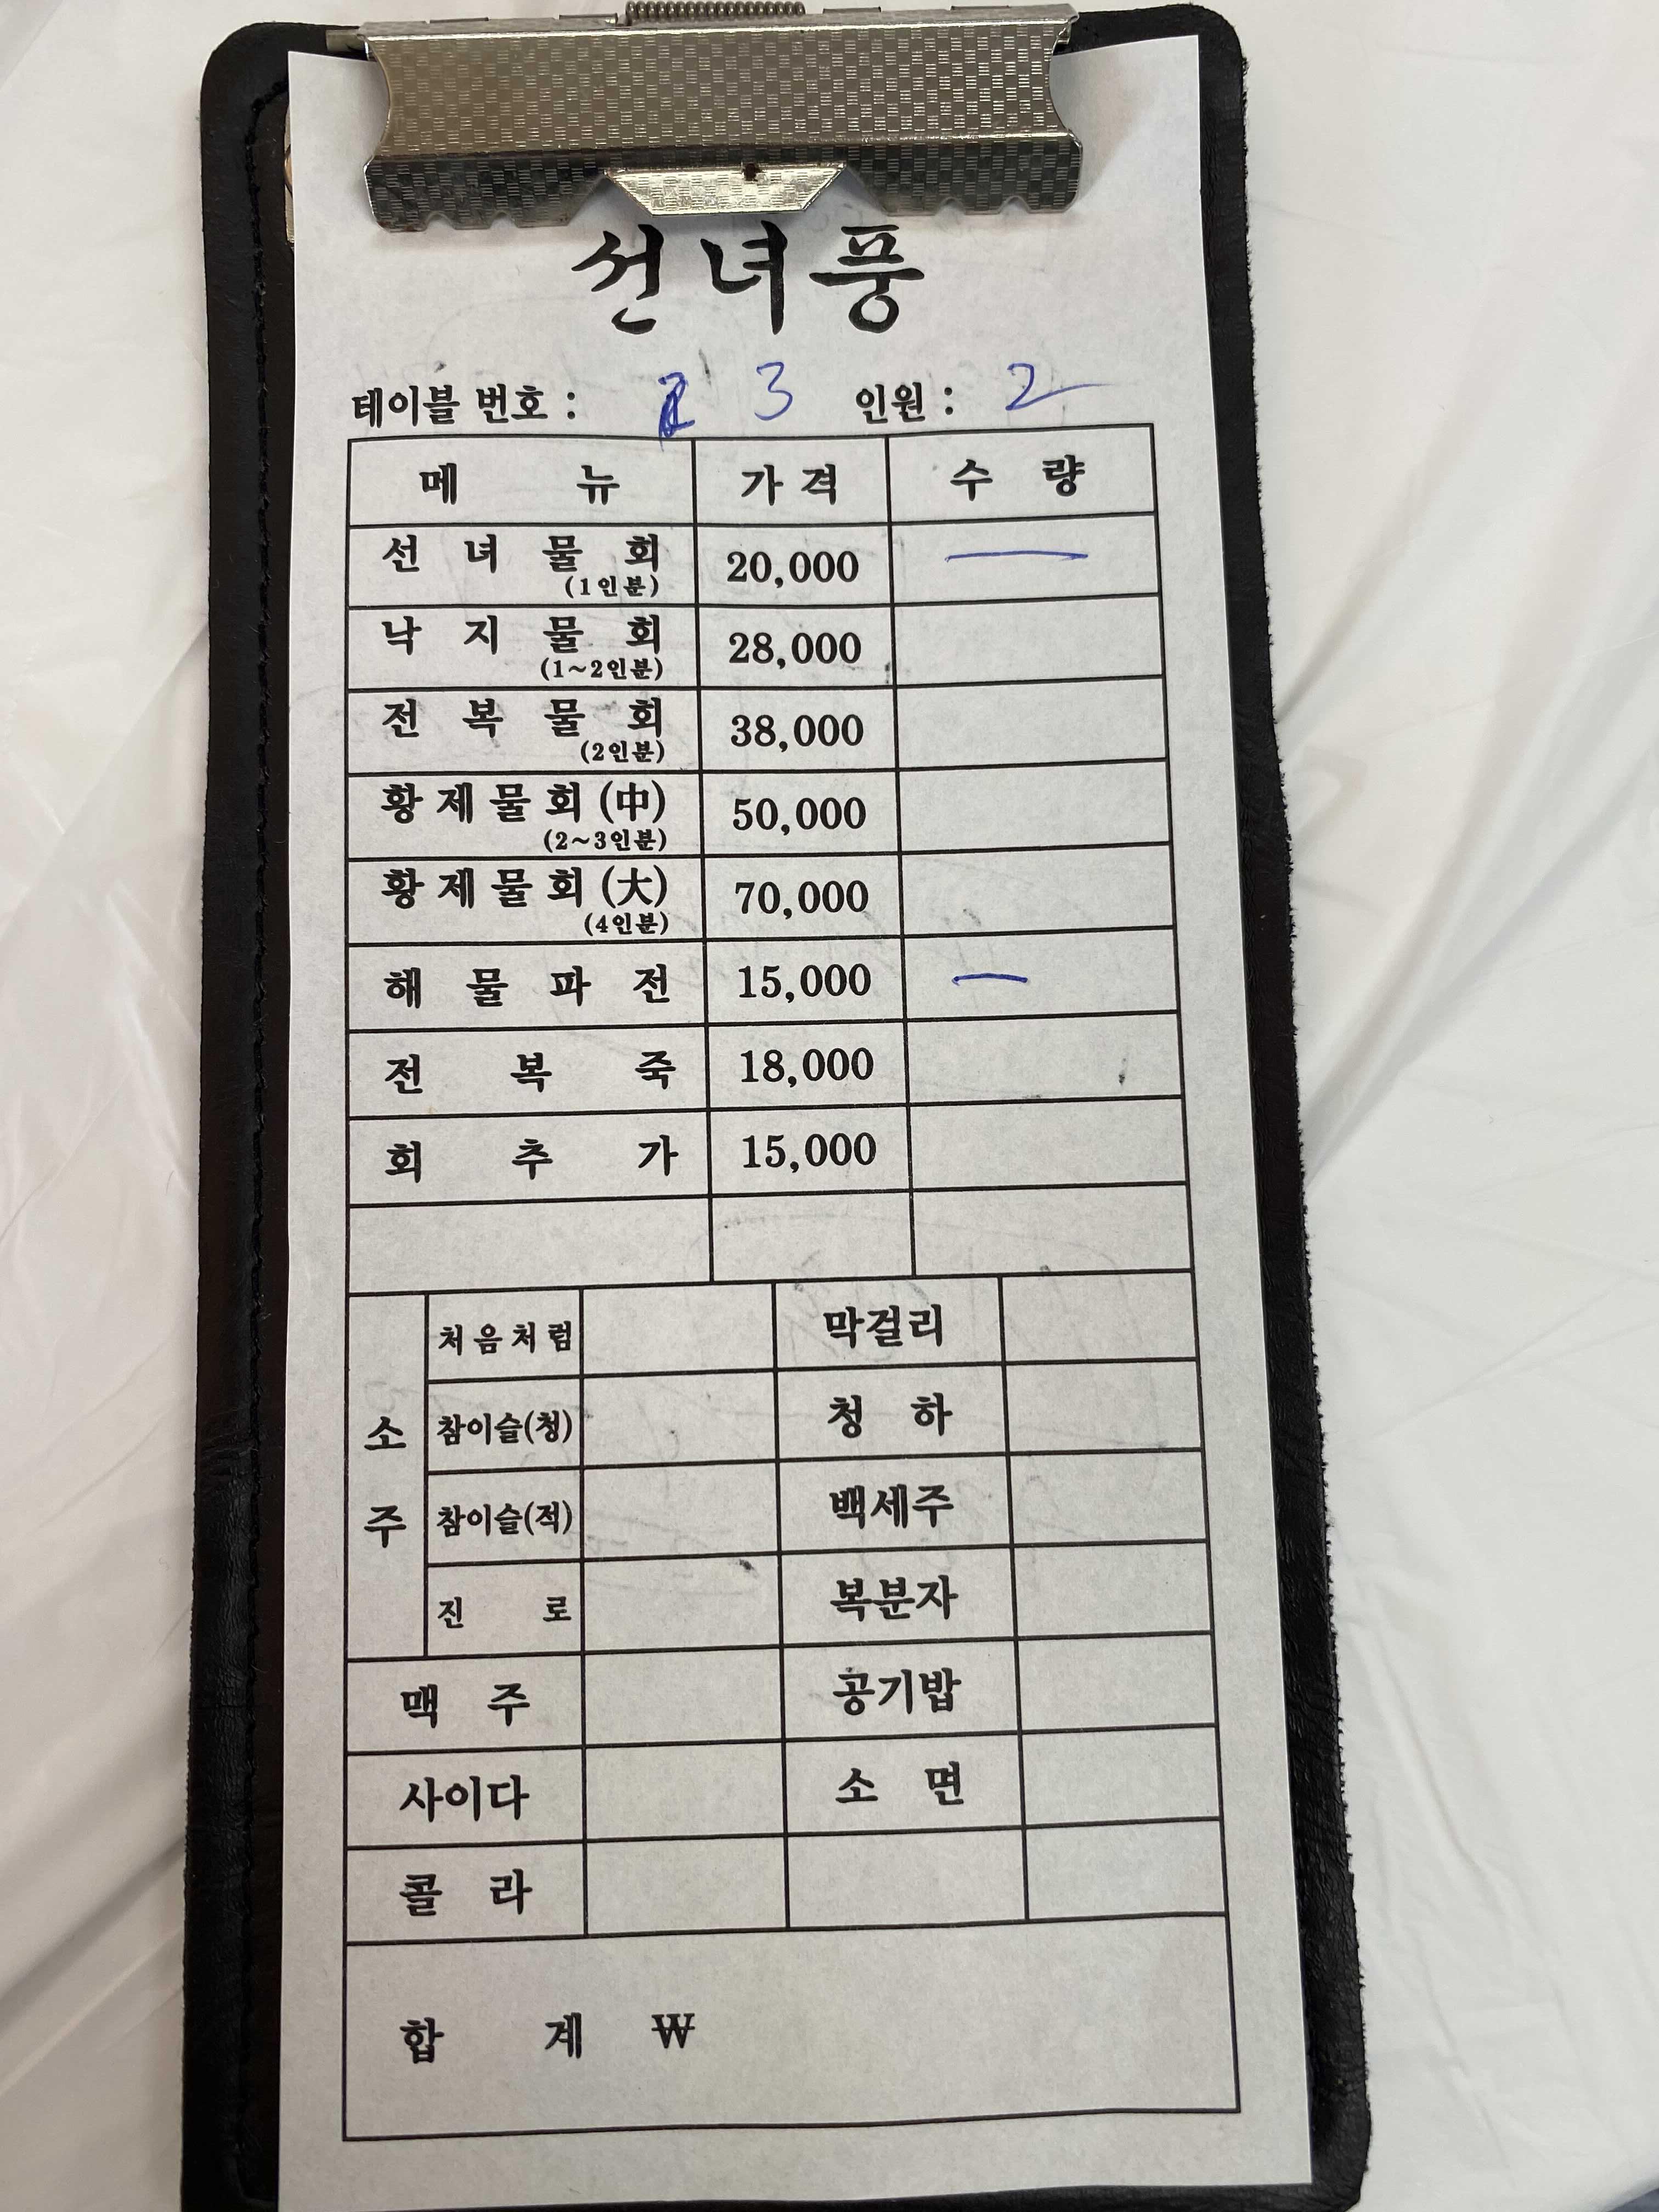 선녀풍
테이블 번호 : 3 인원 : 2
메뉴 가격 수량
선녀물회 (1인분) 20,000 —
낙지물회 (1~2인분) 28,000
전복물회 (2인분) 38,000
황제물회(中) (2~3인분) 50,000
황제물회(大) (4인분) 70,000
해물파전 15,000 —
전복죽 18,000
회추가 15,000
소주 처음처럼 막걸리
참이슬(청) 청하
참이슬(적) 백세주
진로 복분자
맥주 공기밥
사이다 소면
콜라
합계 ₩